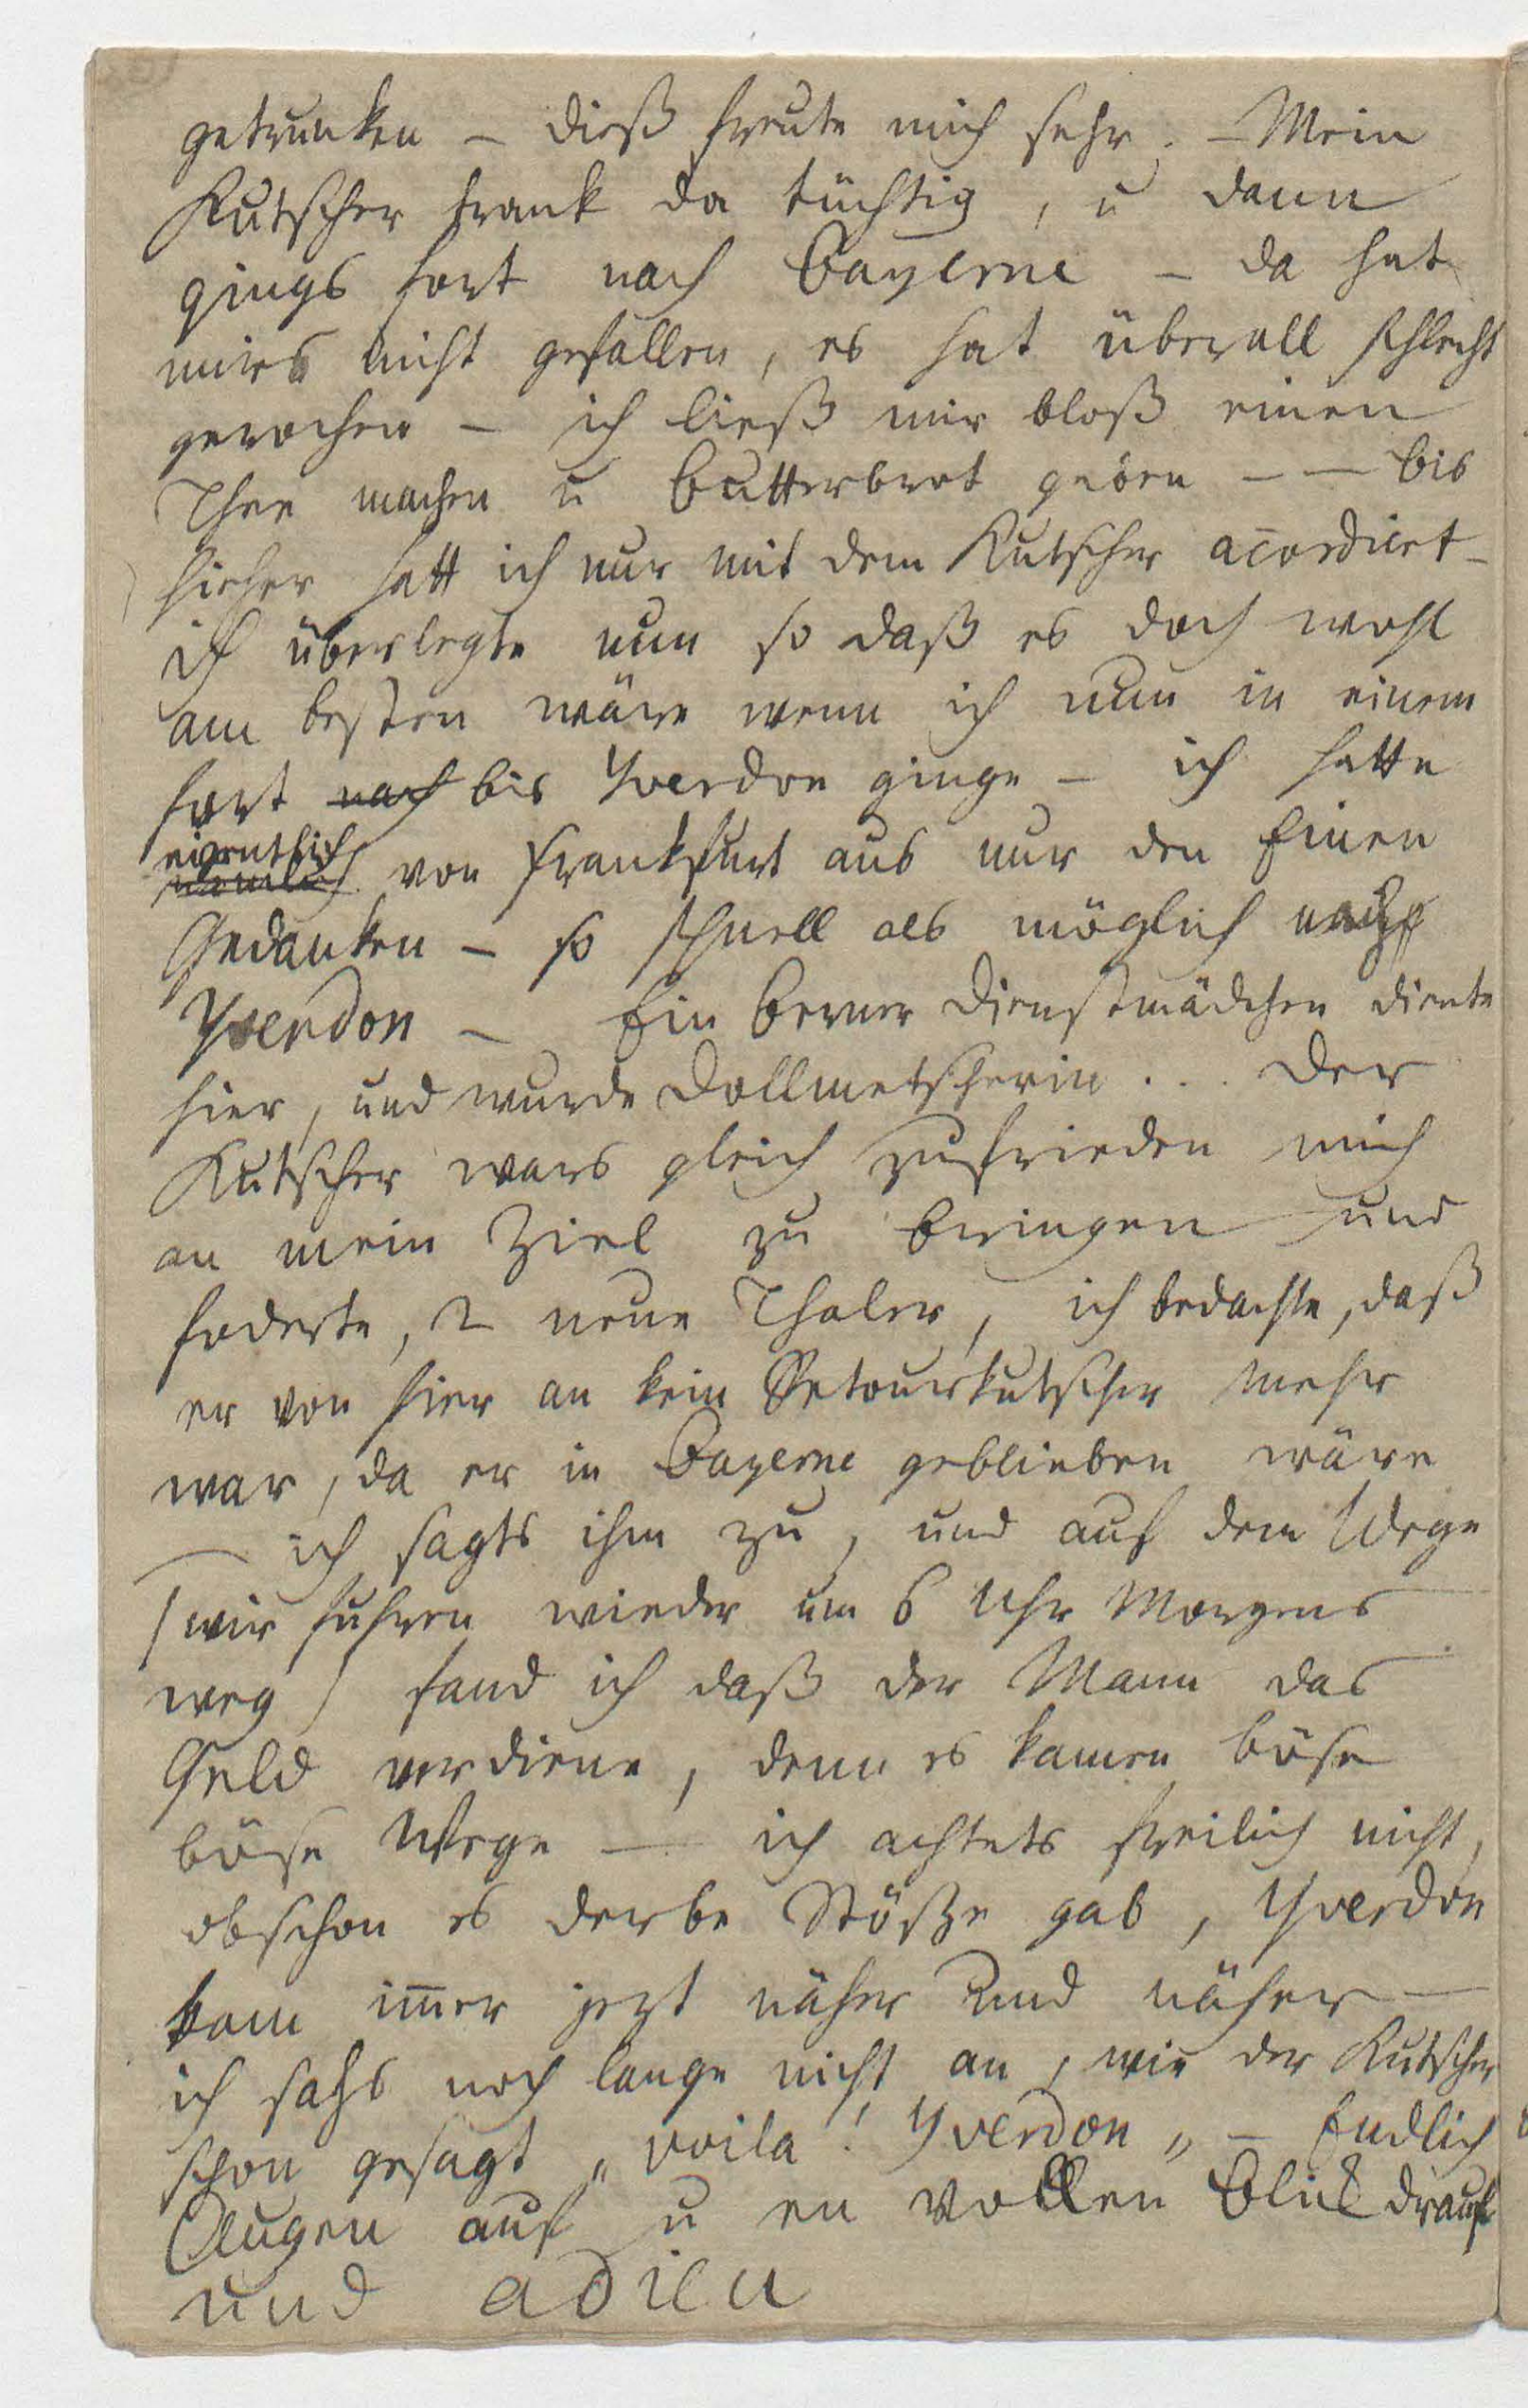 getrunken – dieß freute mich sehr. – Mein
Kutscher trank da tüchtig, u dann
gings fort nach Bayerne – da hat
mirs nicht gefallen, es hat überall schlecht
gerochen – ich ließ mir bloß einen
Thee machen u Butterbrot geben – – bis
hieher hatt ich nur mit dem Kutscher acordirt –
ich überlegte nun so daß es doch wohl
am besten wäre wenn ich nun in einem
fort nach bis Yverdon ginge – ich hatte
eigentlich
nemlich von Frankfurt aus nur den Einen
Gedanken – so schnell als möglich nach
Yverdon – Ein Berner Dienstmädchen diente
hier, und wurde Dollmetscherin... Der
Kutscher wars gleich zufrieden mich
an mein Ziel zu bringen und
foderte, 2 neue Thaler, ich bedachte, daß
er von hier an kein Retourkutscher mehr
war, da er in Bayerne geblieben wäre
– ich sagts ihm zu, und auf dem Wege
/ wir fuhren wieder um 6 Uhr Morgens
weg / fand ich daß der Mann das
Geld verdiene, denn es kamen böse
böse Wege – ich achtets freilich nicht,
obschon es derbe Stöße gab, Yverdon
kam im̅er jezt näher und näher –
ich sahs noch lange nicht an, wie der Kutscher
schon gesagt „voila! Yverdon„ – Endlich
Augen auf u en vollen Blick drauf
und adieu